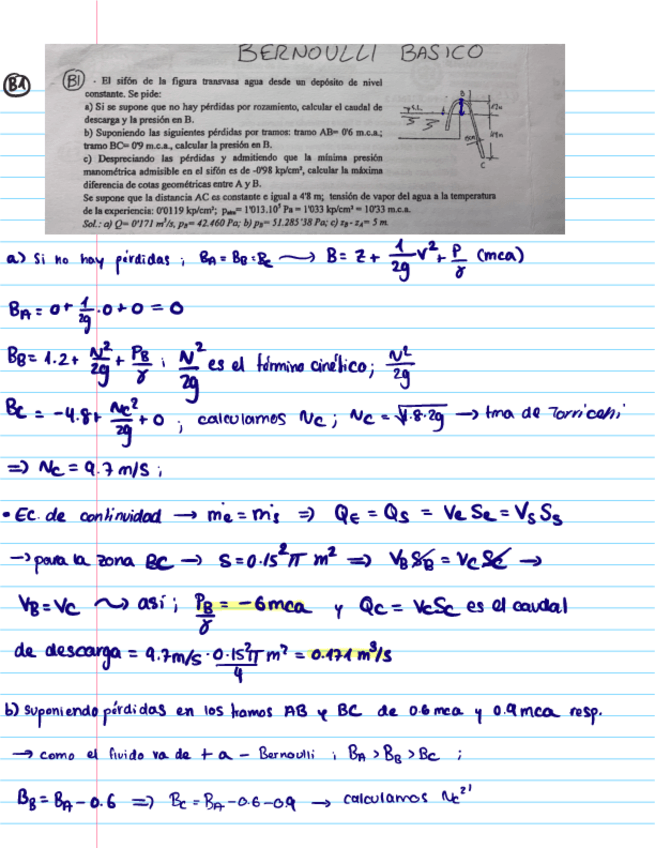 BERNOULLI BASICO
B1
B1 · El sifón de la figura transvasa agua desde un depósito de nivel
constante. Se pide:
a) Si se supone que no hay pérdidas por rozamiento, calcular el caudal de
descarga y la presión en B.
b) Suponiendo las siguientes pérdidas por tramos: tramo AB= 0'6 m.c.a.;
tramo BC= 0'9 m.c.a., calcular la presión en B.
c) Despreciando las pérdidas y admitiendo que la mínima presión
manométrica admisible en el sifón es de -0'98 kp/cm², calcular la máxima
diferencia de cotas geométricas entre A y B.
Se supone que la distancia AC es constante e igual a 4'8 m; tensión de vapor del agua a la temperatura
de la experiencia: 0'0119 kp/cm²; patm= 1'013.10⁵ Pa = 1'033 kp/cm² = 10'33 m.c.a.
Sol.: a) Q= 0'171 m³/s, pB= 42.460 Pa; b) pB= 51.285'38 Pa; c) zB- zA= 5 m.
B
C
a) Si no hay pérdidas ; BA = BB = BC → B = z + 1/2g v² + P/γ (mca)
BA = 0 + 1/2g · 0 + 0 = 0
BB = 1.2 + v²/2g + PB/γ ; v²/2g es el término cinético ; v²/2g
BC = -4.8 + vC²/2g + 0 ; calculamos vC ; vC = √4.8·2g → tma de Torricelli
⇒ vC = 9.7 m/s ;
• Ec. de continuidad → ṁe = ṁs ⇒ QE = QS = Ve Se = VS SS
→ para la zona BC → S = 0.15²π m² ⇒ VB SB = VC SC →
VB = VC ⇝ así ; PB/γ = -6mca y QC = VC SC es el caudal
de descarga = 9.7m/s · 0.15²π/4 m² = 0.171 m³/s
b) Suponiendo pérdidas en los tramos AB y BC de 0.6 mca y 0.9 mca resp.
→ como el fluido va de + a - Bernoulli ; BA > BB > BC ;
BB = BA - 0.6 ⇒ BC = BA - 0.6 - 0.9 → calculamos vC²'